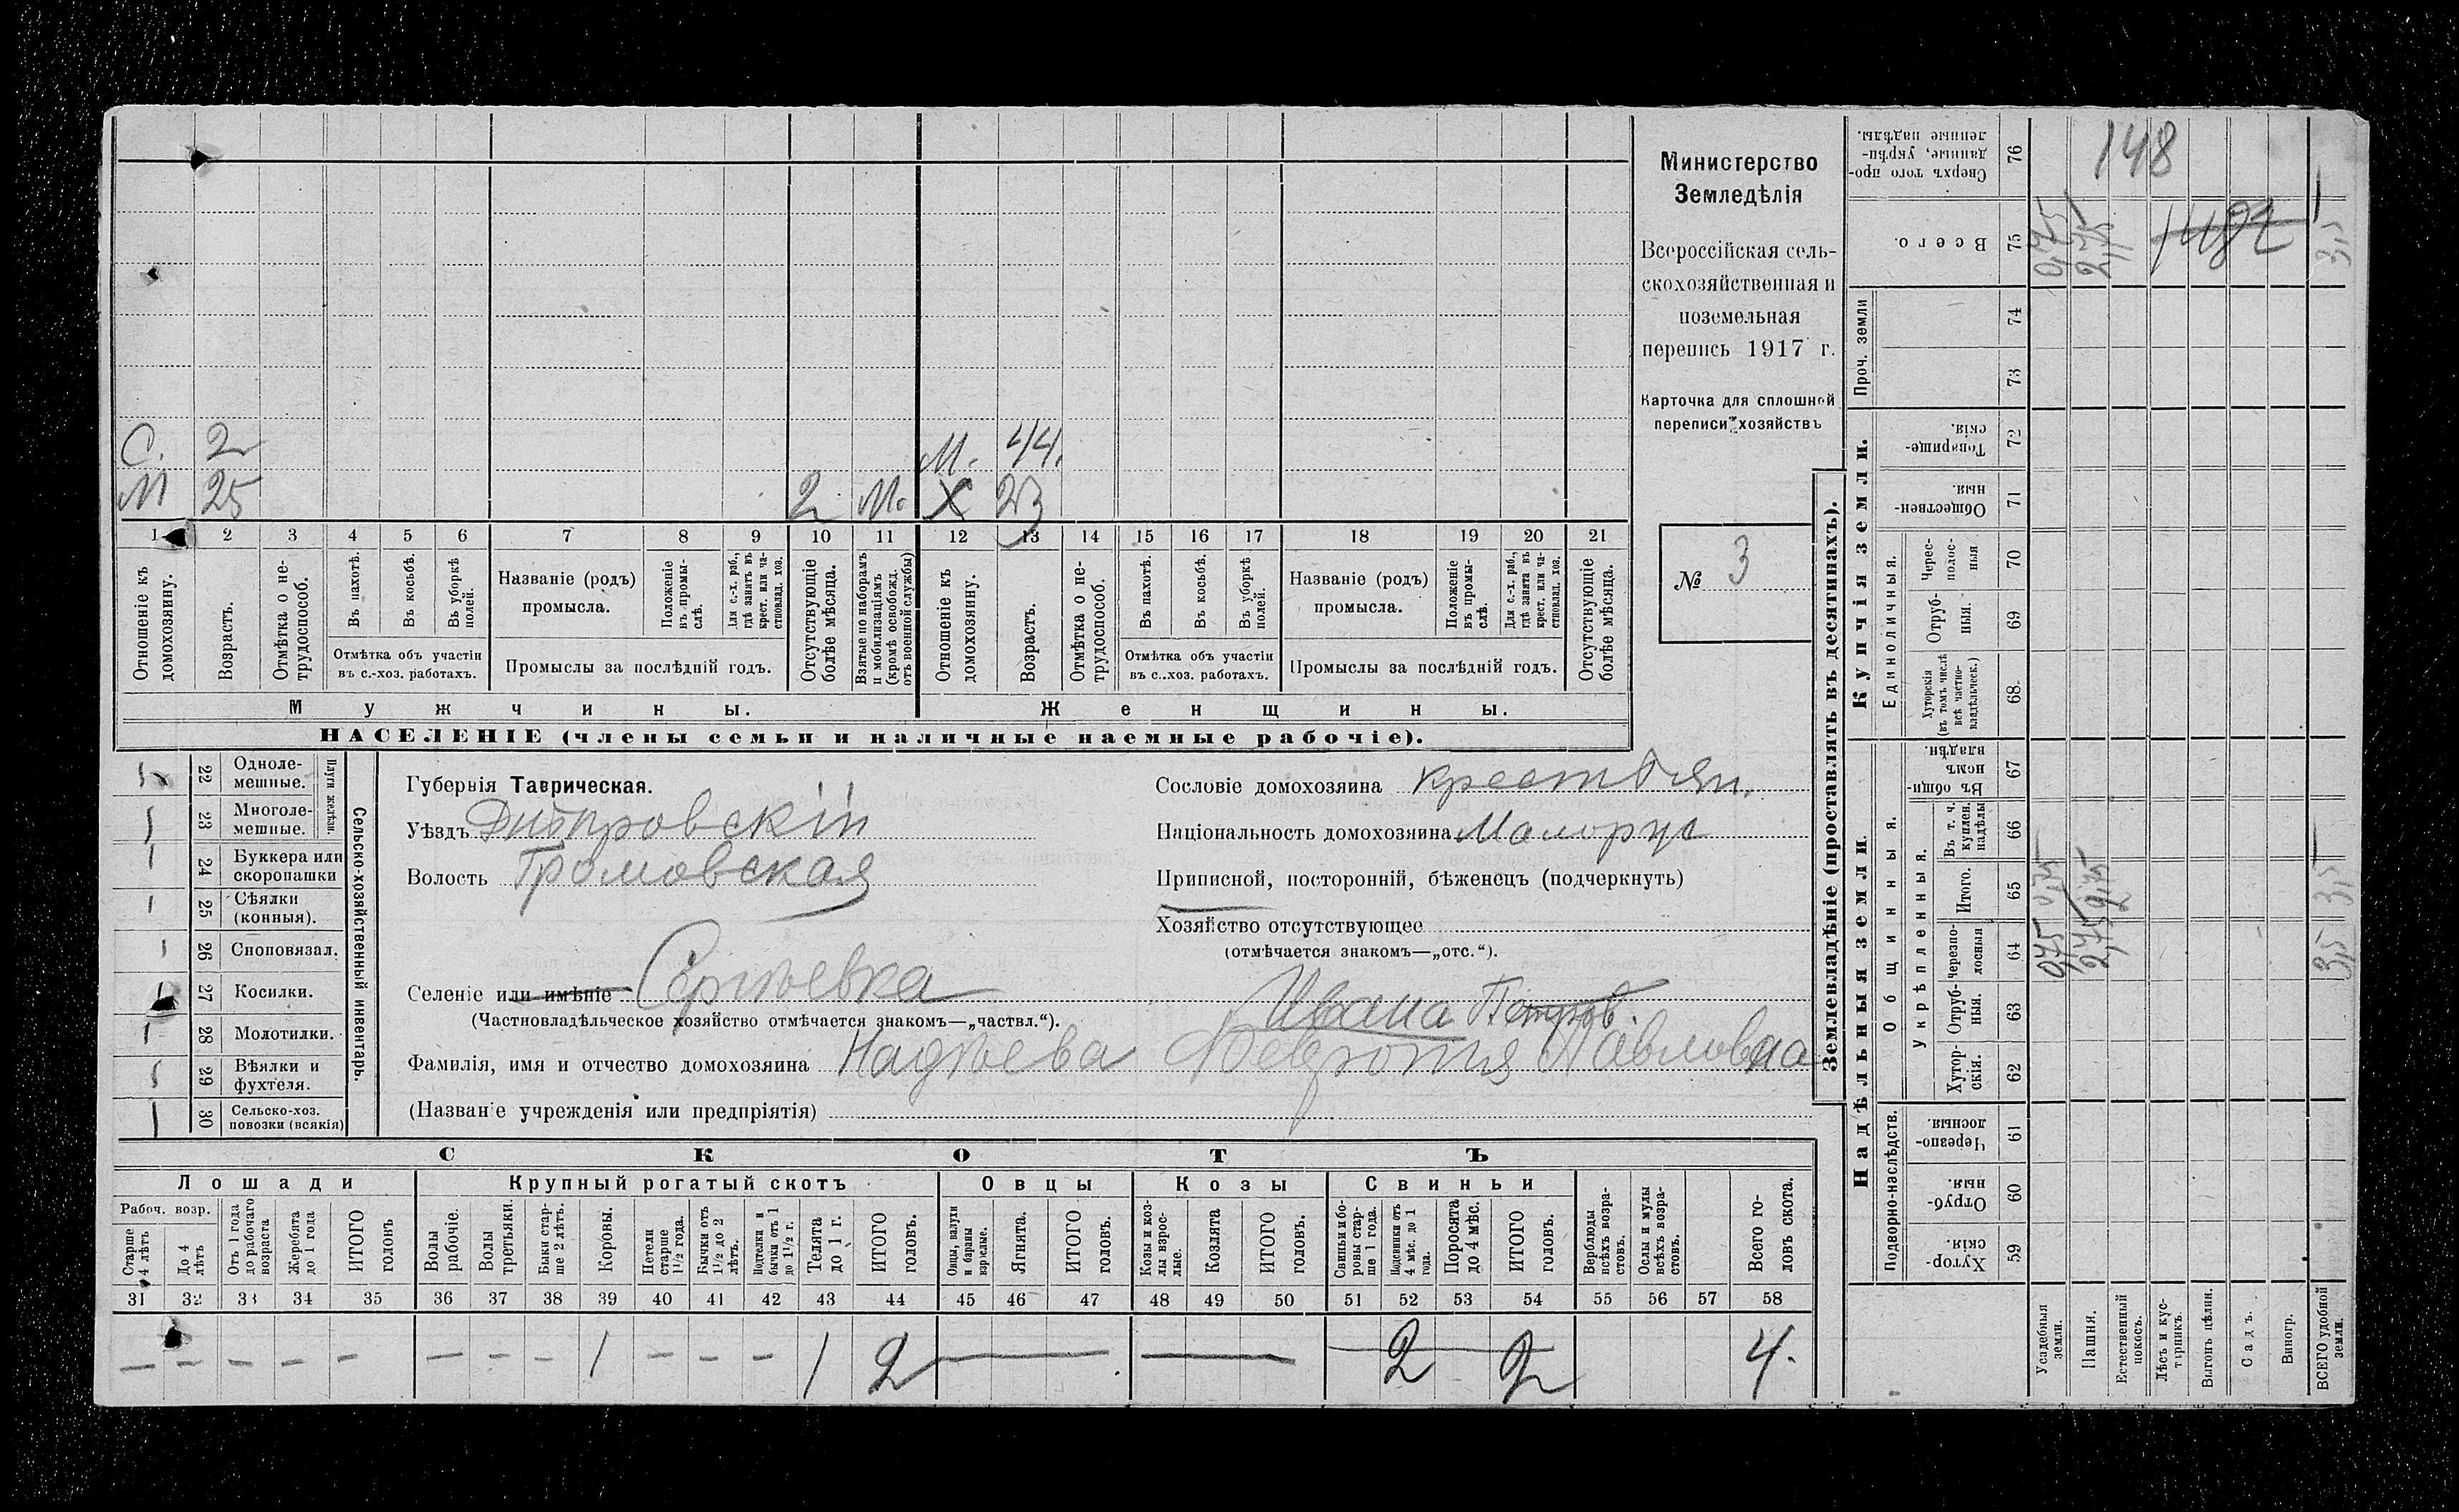 148
1482
Министерство
Земледѣлія
Всероссійская сель-
скохозяйственная и
поземельная
перепись 1917 г.
Карточка для сплошной
переписи хозяйствъ
№ 3
С. 2 М. 44.
М 25 2 М. Х 23
1 2 3 4 5 6 7 8 9 10 11 12 13 14 15 16 17 18 19 20 21
Отношеніе къ домохозяину.
Возрастъ.
Отмѣтка о не-трудоспособ.
Въ пахотѣ.
Въ косьбѣ.
Въ уборкѣ полей.
Отмѣтка объ участіи
въ с.-хоз. работахъ.
Названіе (родъ)
промысла.
Положеніе въ промы-слѣ.
Для с.-х. раб., гдѣ занятъ въ крест. или ча-стновлад. хоз.
Промыслы за послѣдній годъ.
Отсутствующіе болѣе мѣсяца.
Взятые по наборамъ и мобилизаціямъ (кромѣ освобожд. отъ военной службы)
Отношеніе къ домохозяину.
Возрастъ.
Отмѣтка о не-трудоспособ.
Въ пахотѣ.
Въ косьбѣ.
Въ уборкѣ полей.
Отмѣтка объ участіи
въ с.-хоз. работахъ.
Названіе (родъ)
промысла.
Положеніе въ промы-слѣ.
Для с.-х. раб., гдѣ занята въ крест. или ча-стновлад. хоз.
Промыслы за послѣдній годъ.
Отсутствующіе болѣе мѣсяца.
Мужчины. Женщины.
НАСЕЛЕНІЕ (члены семьи и наличные наемные рабочіе).
22 Одноле-мешные.
23 Многоле-мешные.
Плуги желѣзн.
24 Буккера или скоропашки
25 Сѣялки (конныя).
26 Сноповязал.
27 Косилки.
28 Молотилки.
29 Вѣялки и фухтеля.
30 Сельско-хоз. повозки (всякія)
Сельско-хозяйственный инвентарь.
Губернія Таврическая.
Уѣздъ Днѣпровскій
Волость Громовская
Селеніе или имѣніе Сергѣевка
(Частновладѣльческое хозяйство отмѣчается знакомъ—„частвл.“).
Сословіе домохозяина крестьян.
Національность домохозяина Малорус
Приписной, посторонній, бѣженецъ (подчеркнуть)
Хозяйство отсутствующее
(отмѣчается знакомъ—„отс.“).
Ивана Петров.
Фамилія, имя и отчество домохозяина Надѣева Февронія Павловна
(Названіе учрежденія или предпріятія)
СКОТЪ
Лошади Крупный рогатый скотъ Овцы Козы Свиньи
Рабоч. возр.
Старше 4 лѣтъ
До 4 лѣтъ
Отъ 1 года до рабочаго возраста
Жеребята до 1 года
ИТОГО головъ
Волы рабочіе.
Волы третьяки.
Быки стар-ше 2 лѣтъ.
Коровы.
Нетели старше 1½ года.
Бычки отъ 1½ до 2 лѣтъ.
Подтелки и бычки отъ 1 до 1½ г.
Телята до 1 г.
ИТОГО головъ.
Овцы, валухи и бараны взрослые.
Ягнята.
ИТОГО головъ.
Козы и коз-лы взрос-лые.
Козлята
ИТОГО головъ.
Свиньи и бо-ровы стар-ше 1 года.
Подсвинки отъ 4 мѣс. до 1 года.
Поросята до 4 мѣс.
ИТОГО головъ.
Верблюды всѣхъ возра-стовъ.
Ослы и мулы всѣхъ возра-стовъ.
Всего го-ловъ скота.
31 32 33 34 35 36 37 38 39 40 41 42 43 44 45 46 47 48 49 50 51 52 53 54 55 56 57 58
— — — — — — — — 1 — — — 1 2 — — 2 2 4.
Землевладѣніе (проставлять въ десятинахъ).
Надѣльныя земли. Купчія земли. Проч. земли
Подворно-наслѣдств.
Общинныя.
Укрѣпленныя.
Единоличныя.
Хутор-скія. 59
Отруб-ныя. 60
Черезпо-лосныя. 61
Хутор-скія. 62
Отруб-ныя. 63
Черезпо-лосныя 64 0,75 2,75 3,5
Итого. 65 0,75 2,75 3,5
Въ т. ч. куплен. надѣлы 66
Въ общи-номъ владѣн. 67
Хуторскія (въ томъ числѣ всѣ частно-владѣльческ.) 68
Отруб-ныя. 69
Черес-полос-ныя 70
Обществен-ныя 71
Товарище-скія. 72
73
74
Всего. 75 0,75 2,75 3,5
Сверхъ того про-данные, укрѣп-ленные надѣлы. 76
Усадебныя земли.
Пашня.
Естественный покосъ.
Лѣсъ и кус-тарникъ.
Выгонъ цѣлин.
Садъ.
Виногр.
ВСЕГО удобной земли.